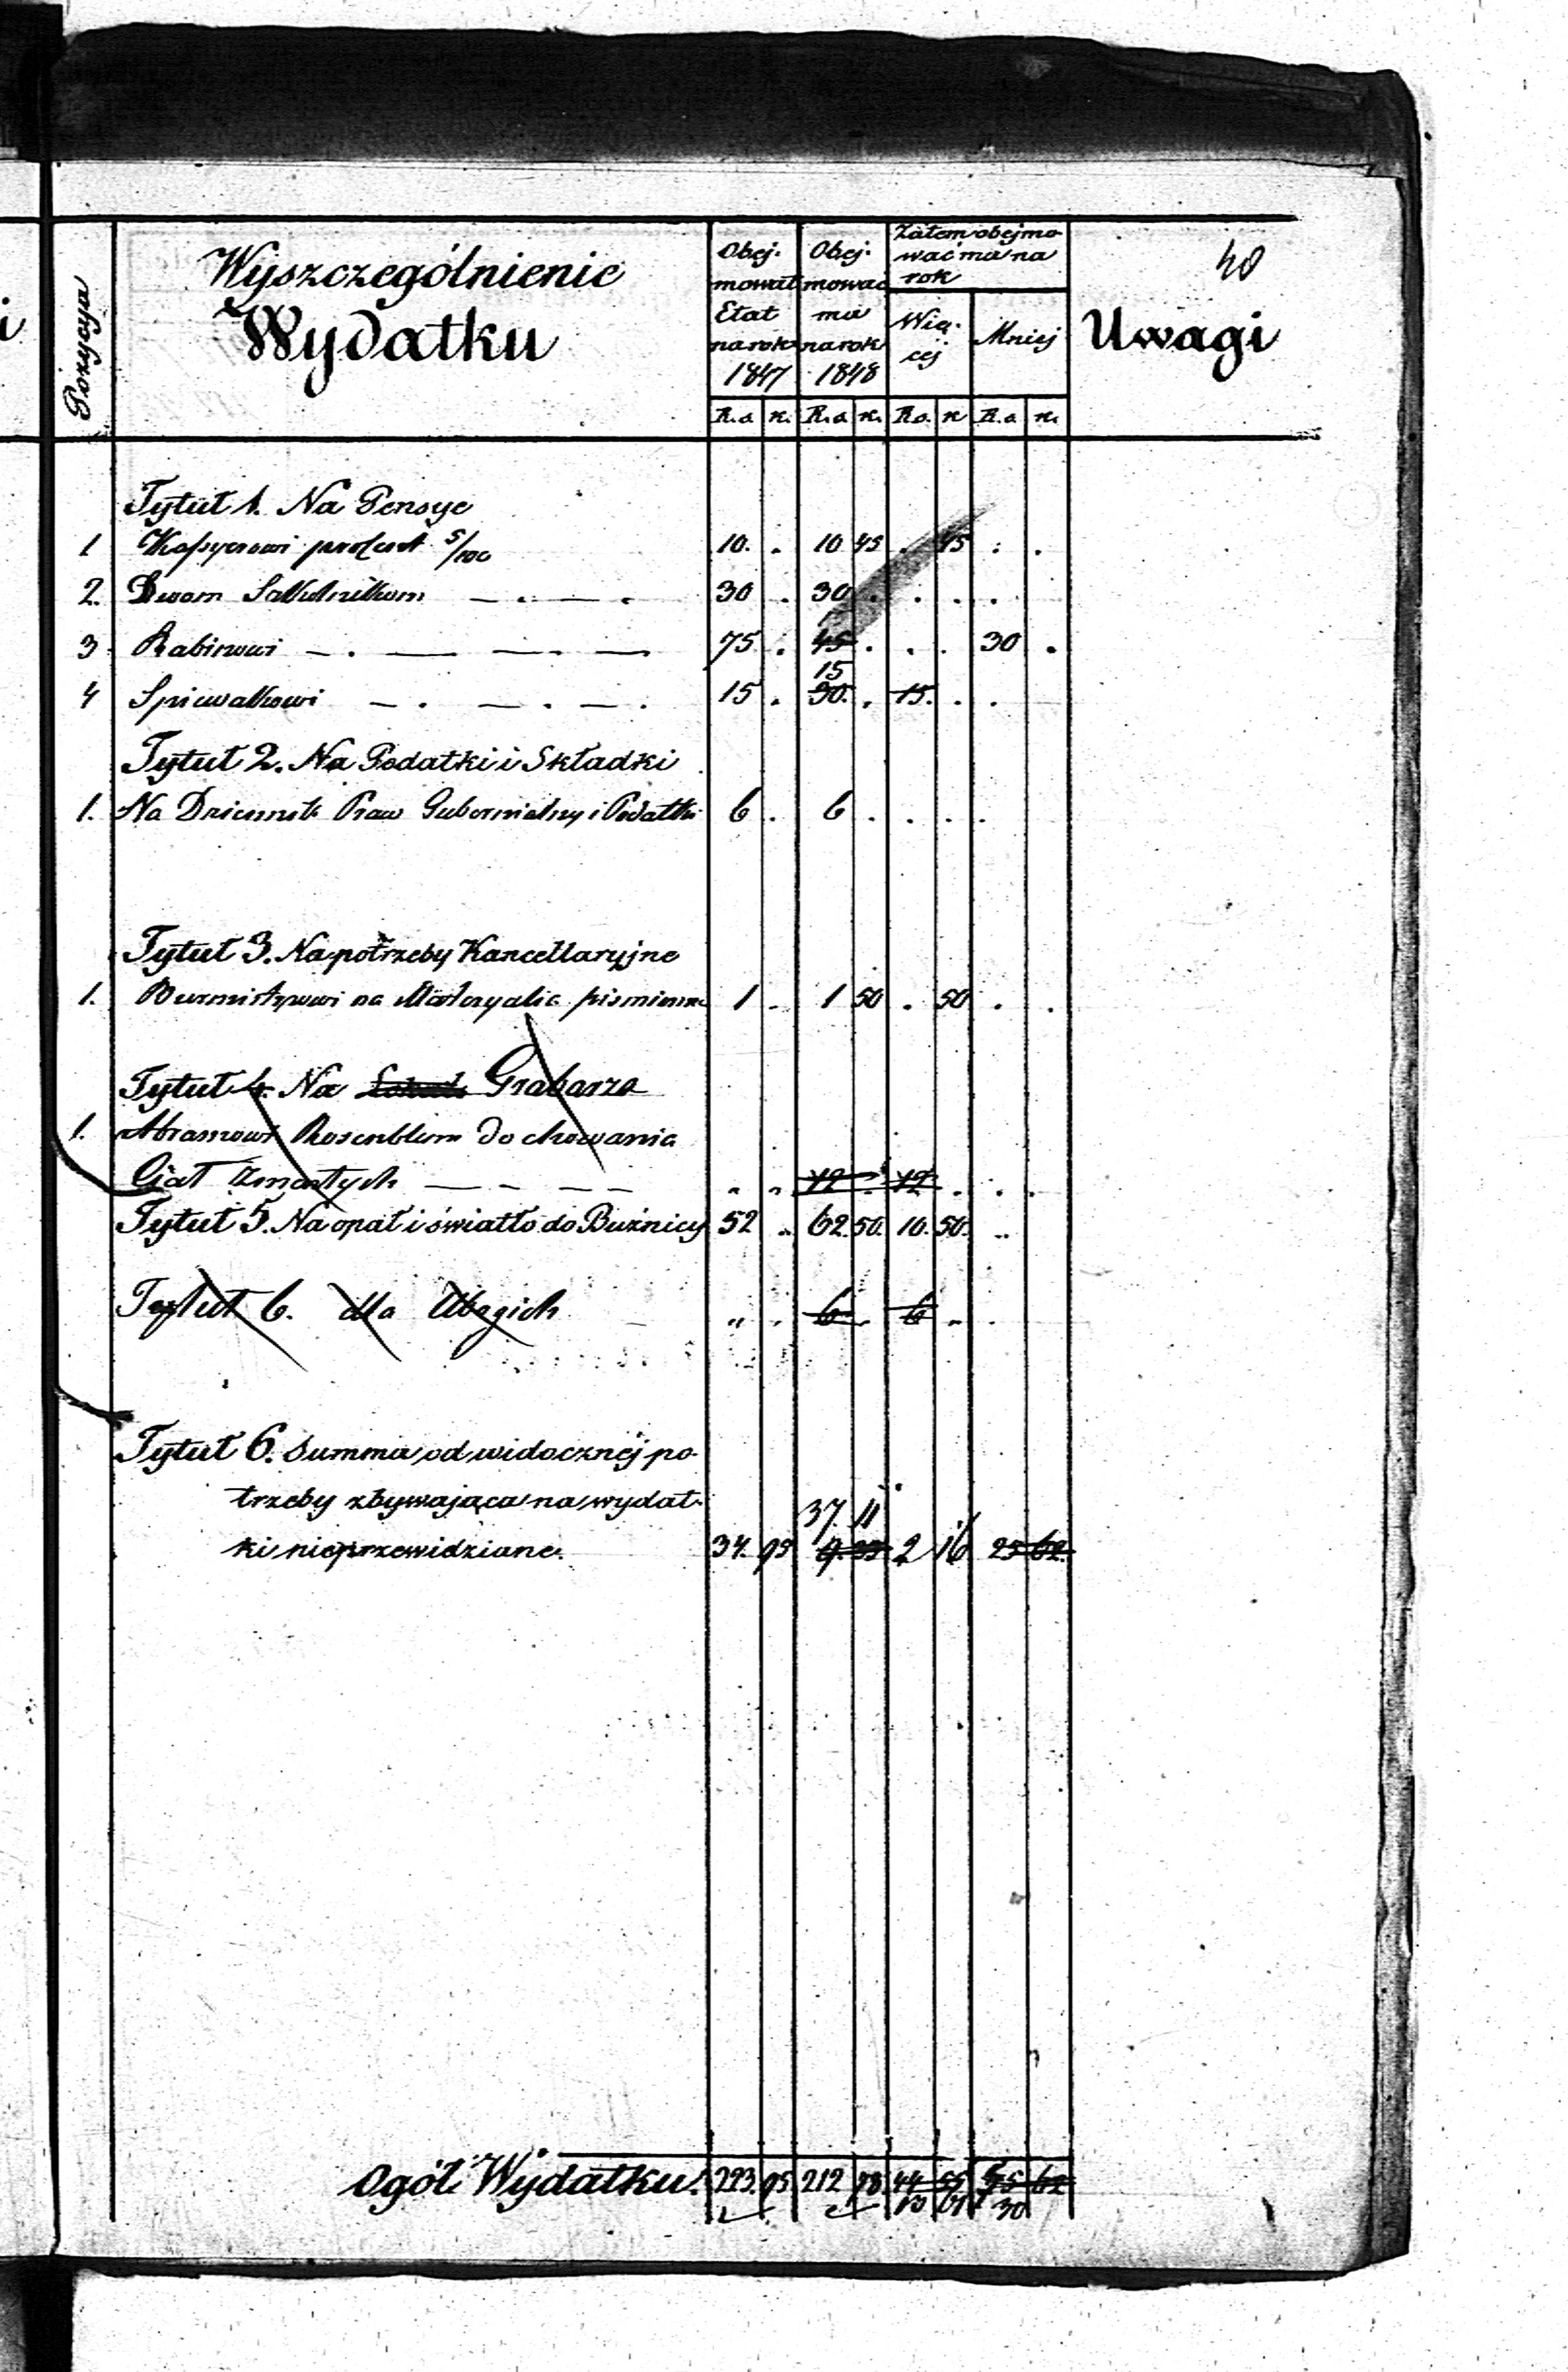 40
Pozycya
Wyszczególnienie
Wydatku
Obej-
mował
Etat
na rok
1847
Obej-
mować
ma
na rok
1848
Zatem obejmo-
wać ma na
rok
Wię-
cej
Mniej
Uwagi
R.s. k. R.s. k. R.s. k. R.s. k.
Tytuł 1. Na Pensye
1 Kassyerowi procent 5/100 10. . 10 45 . 45 . .
2. Dwom Szkolnikom 30 . 30 . . . .
3 Rabinowi 75 . 45 . . . 30 .
15
4 Spiewakowi 15 . 30. . 15. . .
Tytuł 2. Na Podatki i Składki
1. Na Dziennik Praw Gubernialny i Podatki 6 . 6 . . . .
Tytuł 3. Na potrzeby Kancellaryjne
1. Burmistrzowi na Materyalia piśmienne 1 . 1 50 . 50 . .
Tytuł 4. Na Grabarza
1. Abramowi Rosenblum do chowania
Ciał zmarłych . . 12 . 12 . . .
Tytuł 5. Na opał i światło do Bużnicy 52 . 62. 50. 10. 50. .
Tytuł 6. dla Ubogich . . 6 . 6 . .
Tytuł 6. Summa od widocznéj po-
trzeby zbywająca na wydat-
37. 11
ki nieprzewidziane. 34. 95 9. 33 2 16 25 62.
Ogół Wydatku. 223. 95 212 78. 44 55 62
13 61 30